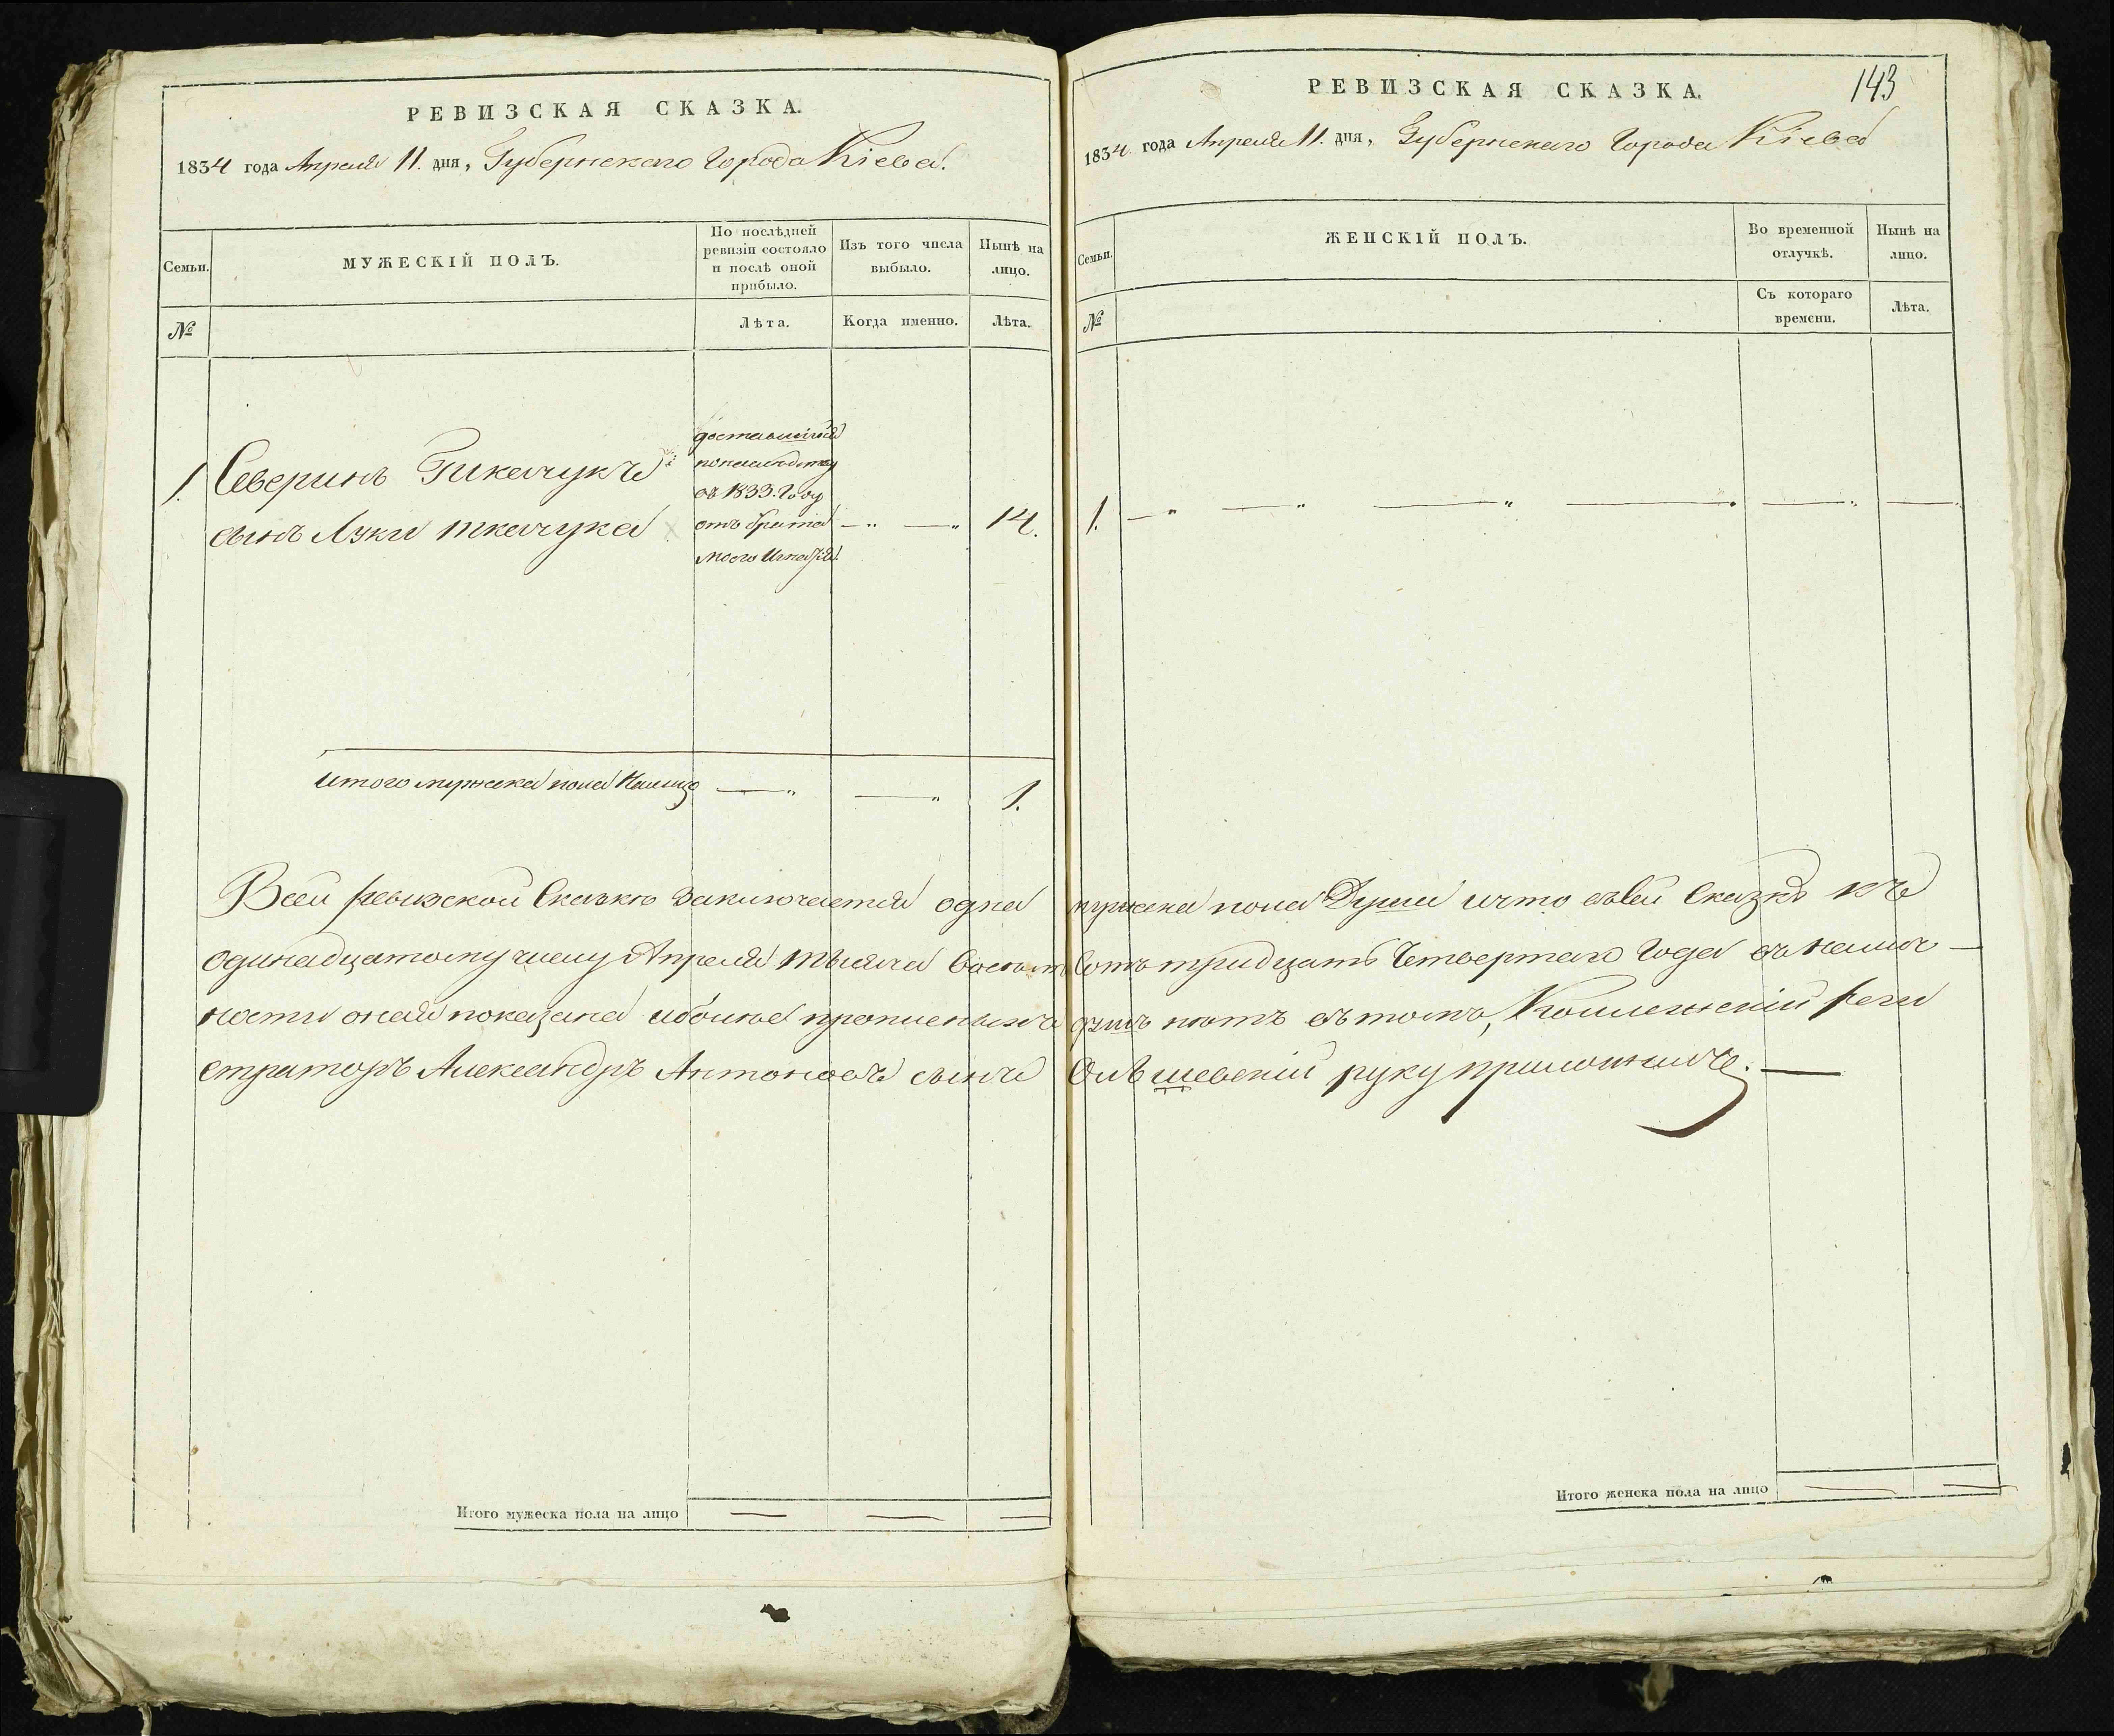 РЕВИЗСКАЯ СКАЗКА.
1834 года Апреля 11. дня, Губернскаго Города Кіева.
Семьи.
МУЖЕСКІЙ ПОЛЪ.
По послѣдней ревизіи состояло и послѣ оной прибыло.
Изъ того числа выбыло.
Нынѣ на лицо.
№
Лѣта.
Когда именно.
Лѣта.
1.
Северинъ
сынъ Луки ткачука
доставшійся
въ 1833. Году
отъ брата
моего
14.
Итого мужска пола Налицо
1.
РЕВИЗСКАЯ СКАЗКА.
143
1834 года Апреля 11. дня, Губернскаго Города Кіева
Семьи.
ЖЕНСКІЙ ПОЛЪ.
Во временной отлучкѣ.
Нынѣ на лицо.
№
Съ котораго времени.
Лѣта.
1.
Всей ревизской Сказкѣ заключается одна мужска пола Душа ичто въсей Сказкѣ къ
одинадцатому числу Апреля тысяча Восемъ Сотъ тридцать Четвертаго Года въ налич
ности оная показана иболе прописныхъ душъ нѣтъ въ томъ, Коллежскій Реги
страторъ Александръ Антоновъ сынъ руку приложилъ.
Итого мужеска пола на лицо
Итого женска пола на лицо